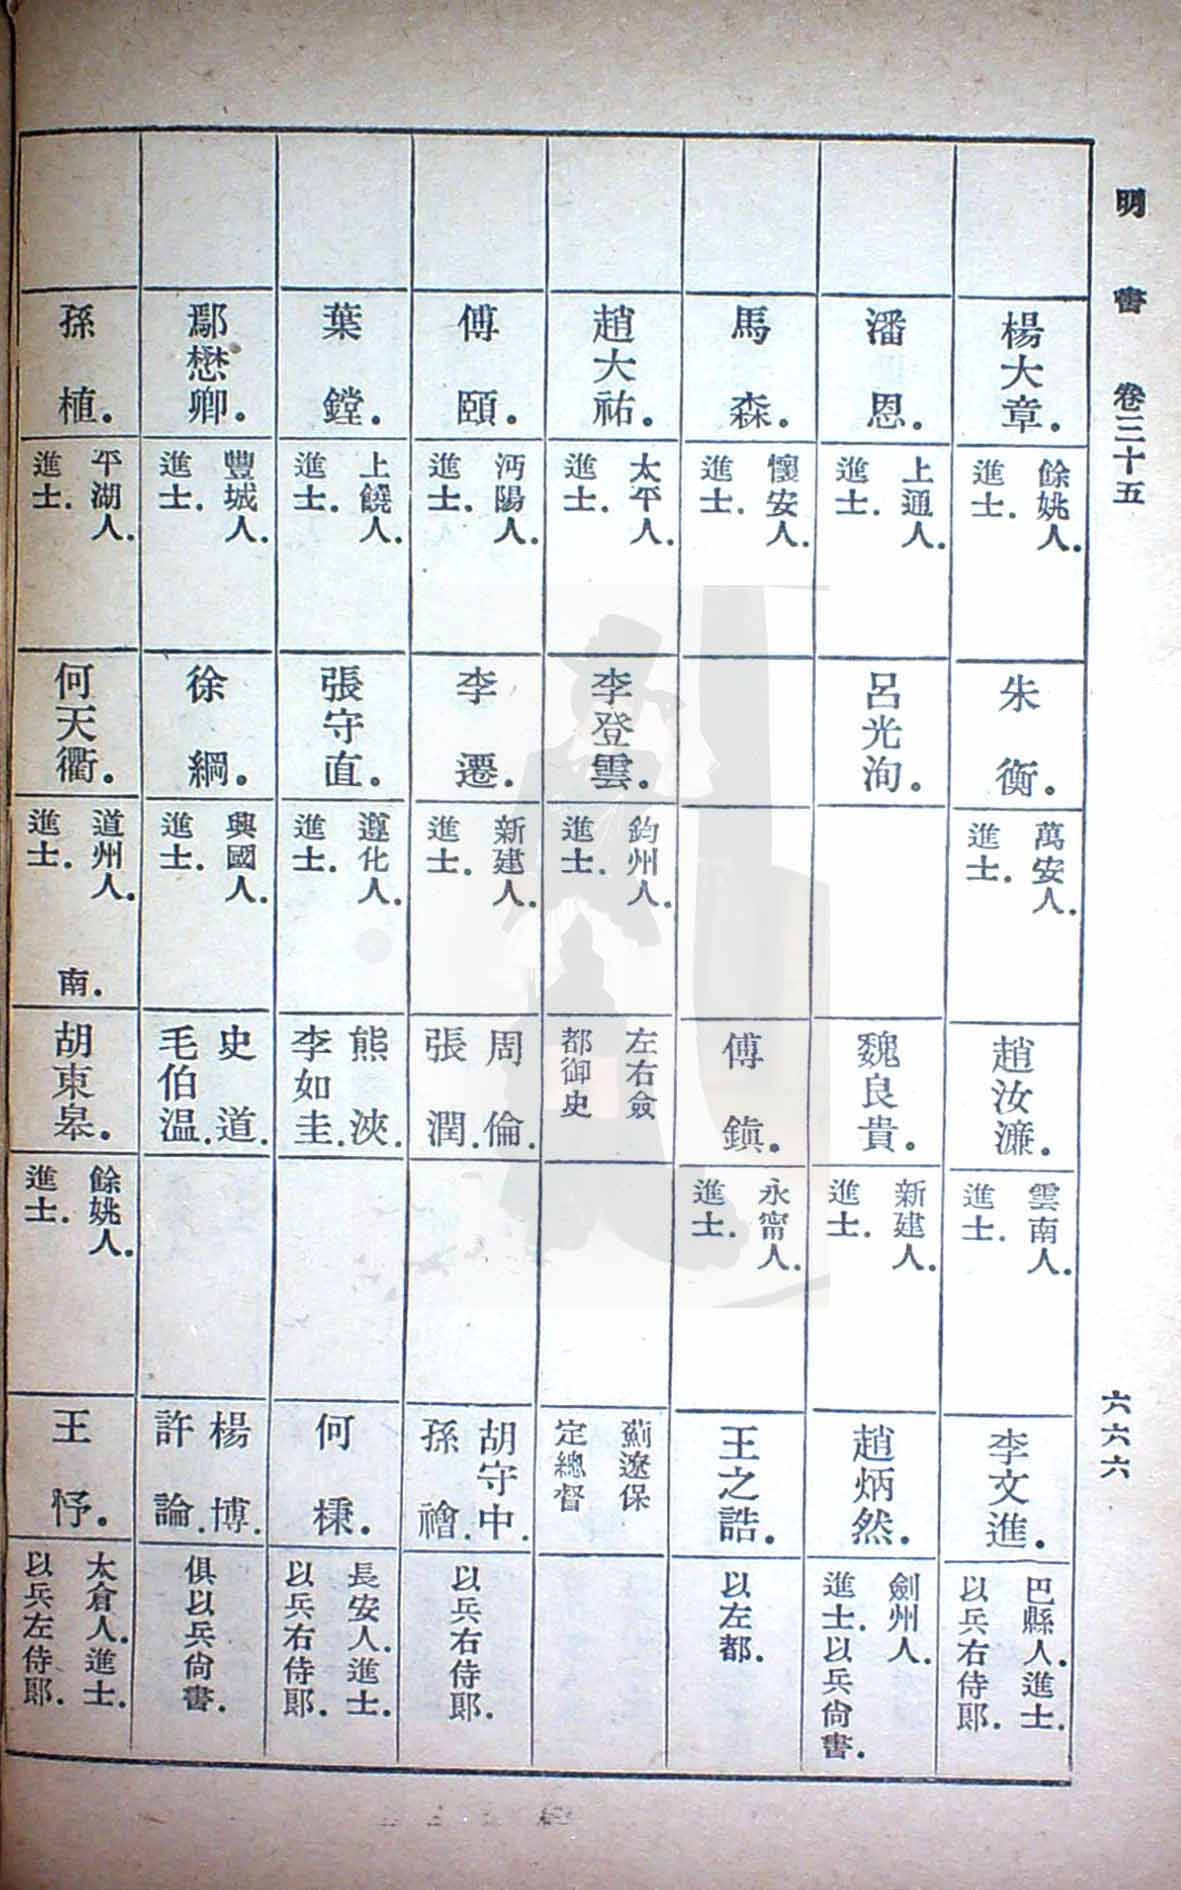 明書 卷三十五
六六六
楊大章.
餘姚人.
進士.
朱衡.
萬安人.
進士.
趙汝濂.
雲南人.
進士.
李文進.
巴縣人.進士.
以兵右侍郎.
潘恩.
上通人.
進士.
呂光洵.
魏良貴.
新建人.
進士.
趙炳然.
劍州人.
進士.以兵尙書.
馬森.
懷安人.
進士.
傅鎮.
永甯人.
進士.
王之誥.
以左都.
趙大祐.
太平人.
進士.
李登雲.
鈞州人.
進士.
左右僉
都御史
薊遼保
定總督
傅頤.
沔陽人.
進士.
李遷.
新建人.
進士.
周倫.
張潤.
胡守中.
孫禬.
以兵右侍郎.
葉鏜.
上饒人.
進士.
張守直.
遵化人.
進士.
熊浹.
李如圭.
何棟.
長安人.進士.
以兵右侍郎.
鄢懋卿.
豐城人.
進士.
徐綱.
興國人.
進士.
史道.
毛伯温.
楊博.
許論.
俱以兵尙書.
孫植.
平湖人.
進士.
何天衢.
道州人.
進士.
南.
胡東皋.
餘姚人.
進士.
王忬.
太倉人.進士.
以兵左侍郎.